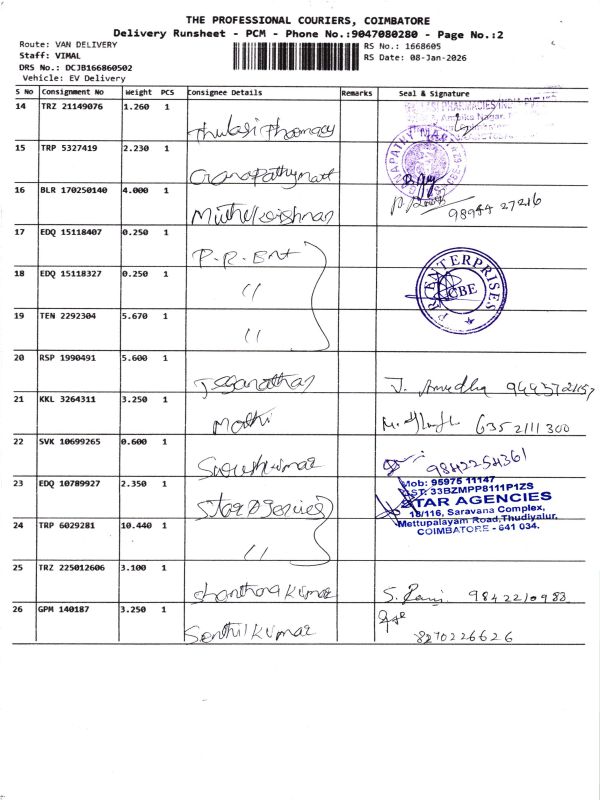 THE PROFESSIONAL COURIERS, COIMBATORE
Delivery Runsheet - PCM - Phone No.:9047080280 - Page No.:2
Route: VAN DELIVERY
Staff: VIMAL
DRS No.: DCJB166860502
Vehicle: EV Delivery
RS No.: 1668605
RS Date: 08-Jan-2026
S No Consignment No Weight PCS Consignee Details Remarks Seal & Signature
14 TRZ 21149076 1.260 1 Thulasi Pharmacy
PHARMACIES INDIA PVT LTD
15 TRP 5327419 2.230 1 Ganapathy mart
GANAPATHY MART
16 BLR 170250140 4.000 1 Muthukrishnan 98944 27216
17 EDQ 15118407 0.250 1 P.R. Ent
18 EDQ 15118327 0.250 1 "
P.R. ENTERPRISES
CBE
19 TEN 2292304 5.670 1 "
20 RSP 1990491 5.600 1 Jeganathan J. Anudha
21 KKL 3264311 3.250 1 Mathi 6352111300
22 SVK 10699265 0.600 1 Sureshkumar 9842254361
23 EDQ 10789927 2.350 1 Star Agencies
Mob: 95975 11147
GST: 33BZMPP8111P1ZS
STAR AGENCIES
18/116, Saravana Complex,
Mettupalayam Road, Thudiyalur,
COIMBATORE - 641 034.
24 TRP 6029281 10.440 1 "
25 TRZ 225012606 3.100 1 Shanthakumar S. Rani 9842210983
26 GPM 140187 3.250 1 Senthilkumar 8270226626